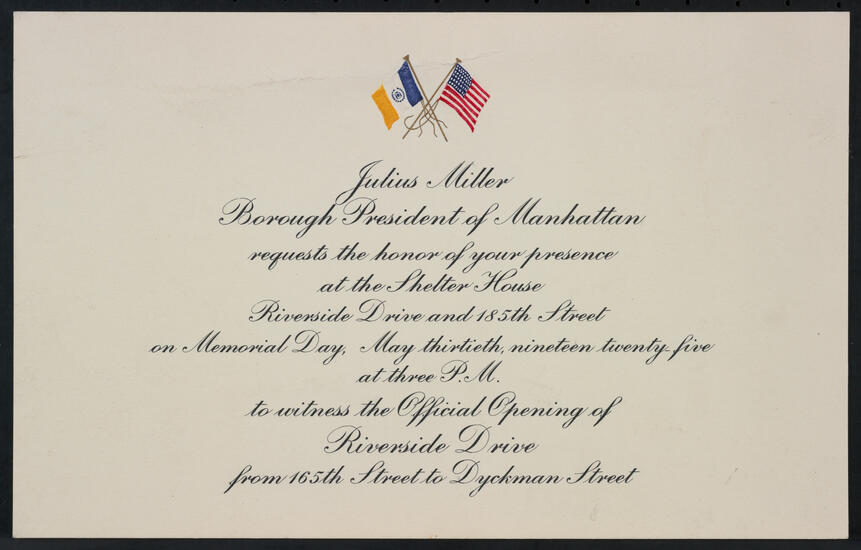 Julius Miller
Borough President of Manhattan
requests the honor of your presence
at the Shelter House
Riverside Drive and 185th Street
on Memorial Day, May thirtieth, nineteen twenty-five
at three P.M.
to witness the Official Opening of
Riverside Drive
from 165th Street to Dyckman Street